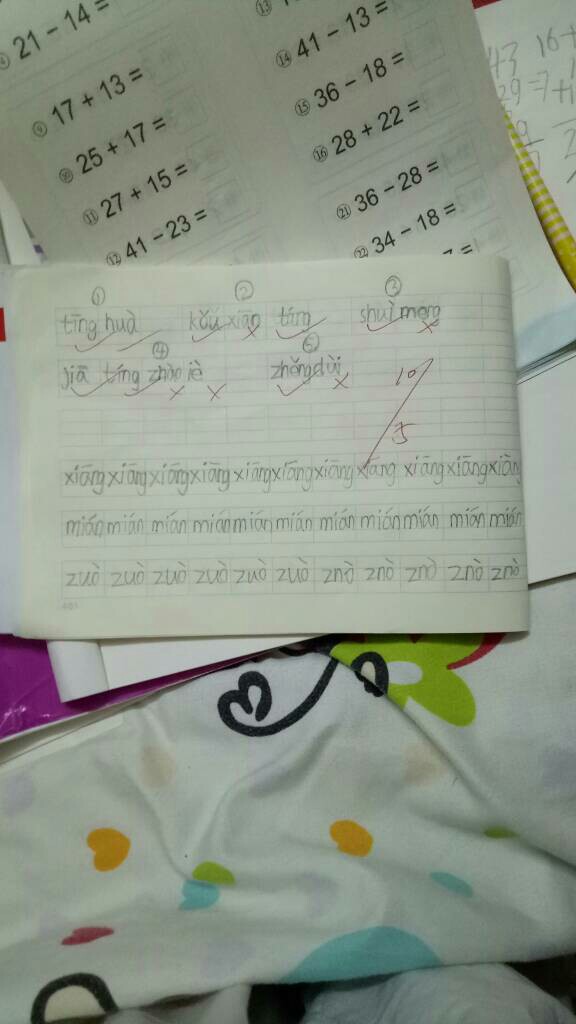 21 − 14 =
⑨ 17 + 13 =
⑩ 25 + 17 =
⑪ 27 + 15 =
⑫ 41 − 23 =
⑬
⑭ 41 − 13 =
⑮ 36 − 18 =
⑯ 28 + 22 =
㉑ 36 − 28 =
㉒ 34 − 18 =
43 16+
29=7+
① ② ③
tīng huà kǒu xiān tíng shuǐ
④ ⑤
jiā tíng
10
5
xiāng xiāng xiāng xiāng xiāng xiāng xiāng xiāng xiāng xiāng xiāng
mián mián mián mián mián mián mián mián mián mián mián
zuò zuò zuò zuò zuò zuò znò znò znò znò znò